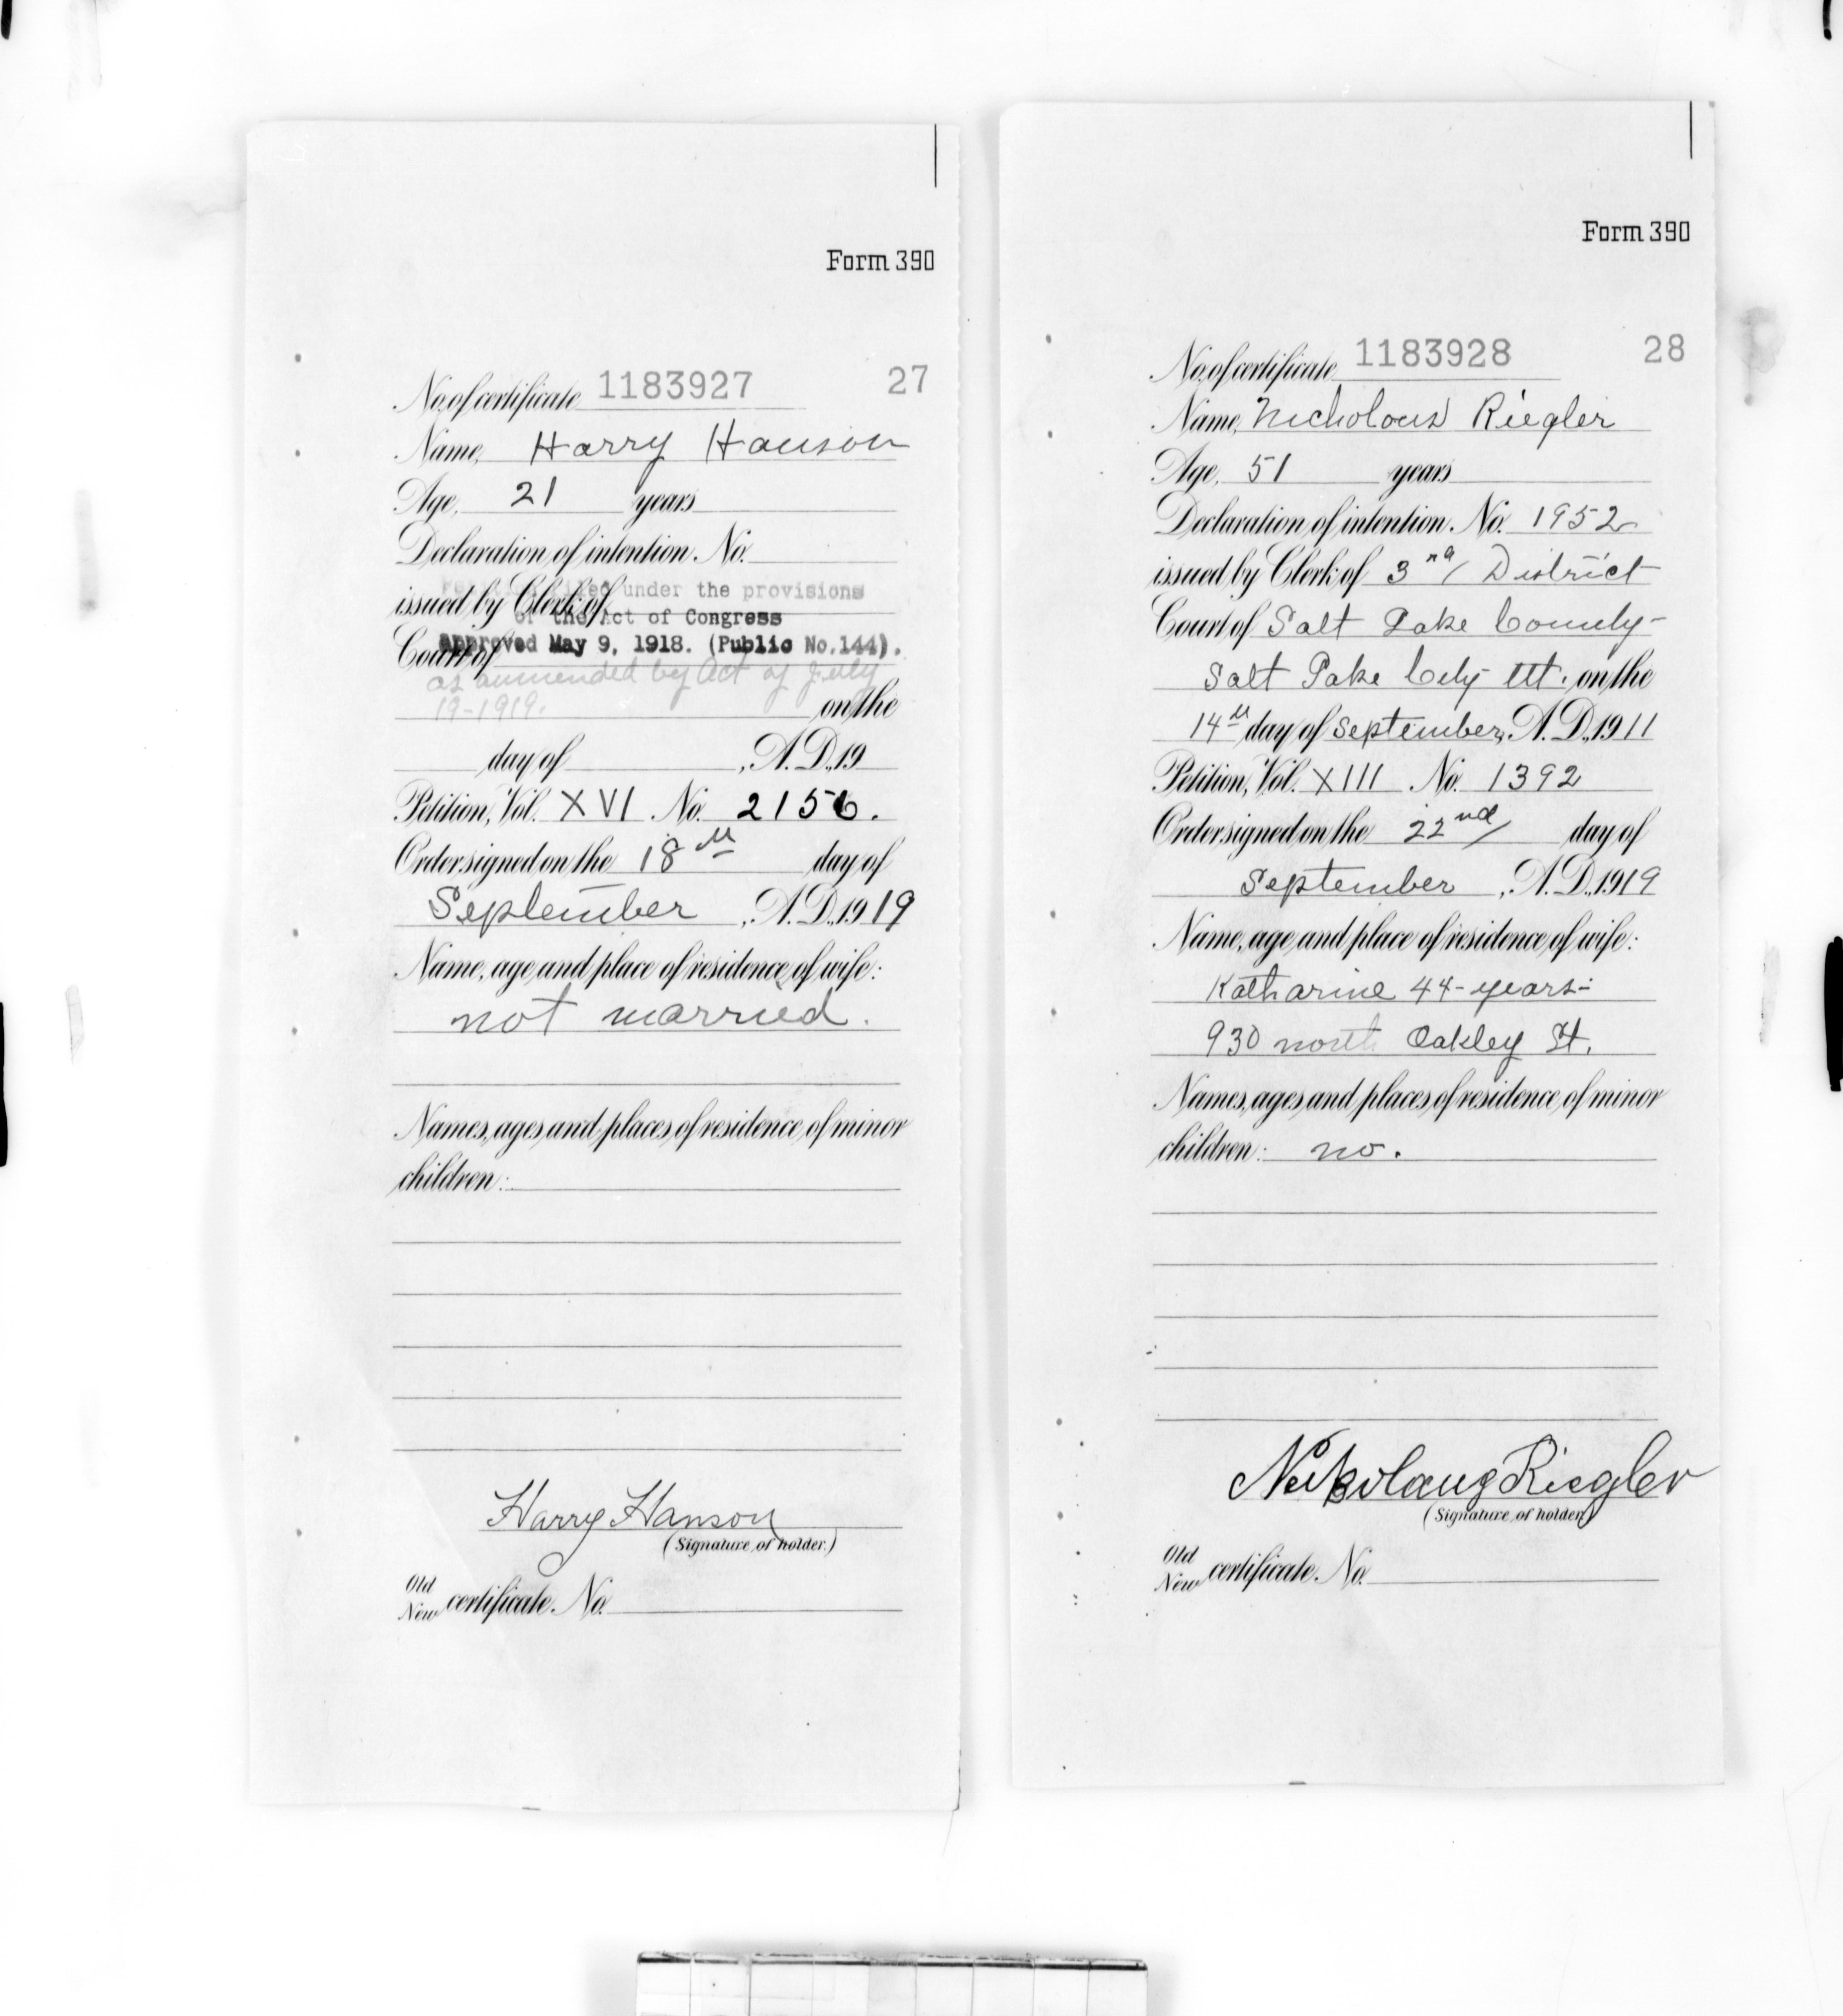 Form 390
No. of certificate 1183927 27
Name, Harry Hanson
Age, 21 years
Declaration of intention No.
Petition filed under the provisions
issued by Clerk of
of the Act of Congress
Court of
Approved May 9, 1918. (Public No. 144).
as ammended by Act of July
19-1919. on the
day of , A.D. 19
Petition, Vol. XVI No. 2156.
Order signed on the 18th day of
September , A.D. 1919
Name, age and place of residence of wife:
not married.
Names, ages and places of residence of minor
children:
Harry Hanson
(Signature of holder.)
Old
New certificate No.
Form 390
No. of certificate 1183928 28
Name, Nicholaus Riegler
Age, 51 years
Declaration of intention No. 1952
issued by Clerk of 3rd District
Court of Salt Lake County-
Salt Lake City Ut. on the
14th day of September, A.D. 1911
Petition, Vol. XIII No. 1392
Order signed on the 22nd day of
September , A.D. 1919
Name, age and place of residence of wife:
Katharine 44-years-
930 north Oakley St.
Names, ages and places of residence of minor
children: no.
Riegler
(Signature of holder)
Old
New certificate No.